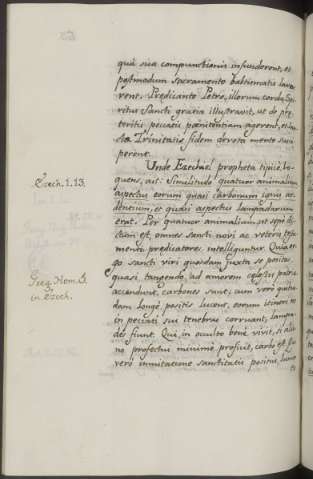 quà sua compunctionis infunderent, et
postmodum sacramento baptismatis lava-
rent. Predicante Petro, illorum corda Spi-
ritus Sancti gratia illustravit, ut de pre-
teritis peccatis poenitentiam agerent, et
Trinitatis fidem devota mente susci-
perent.
Unde Ezechiel propheta lo-
quens, ait: Similitudo quatuor animalium
aspectus eorum quasi carbonum ignis ar-
dentium, et quasi aspectus lampadarum
Ezech. 1. 13.
erat. Per quatuor animalium, ut sepè di-
ctum est, omnes sancti novi ac veteris tes-
menti predicatores intelliguntur. Quia er-
go sancti viri quosdam juxta se positos,
quasi tangendo, ad amorem celestis patrie
accendunt, carbones sunt, cum verò quibus-
dam longè positis lucent, eorum itineri ne
in peccati sui tenebras corruant, lampa-
des fiunt. Qui in occulto benè vivit, si alie-
no profectui minimè proficit, carbo est
verò immitatione sanctitatis positus, lumen
Greg. Hom. 5.
in Ezech.